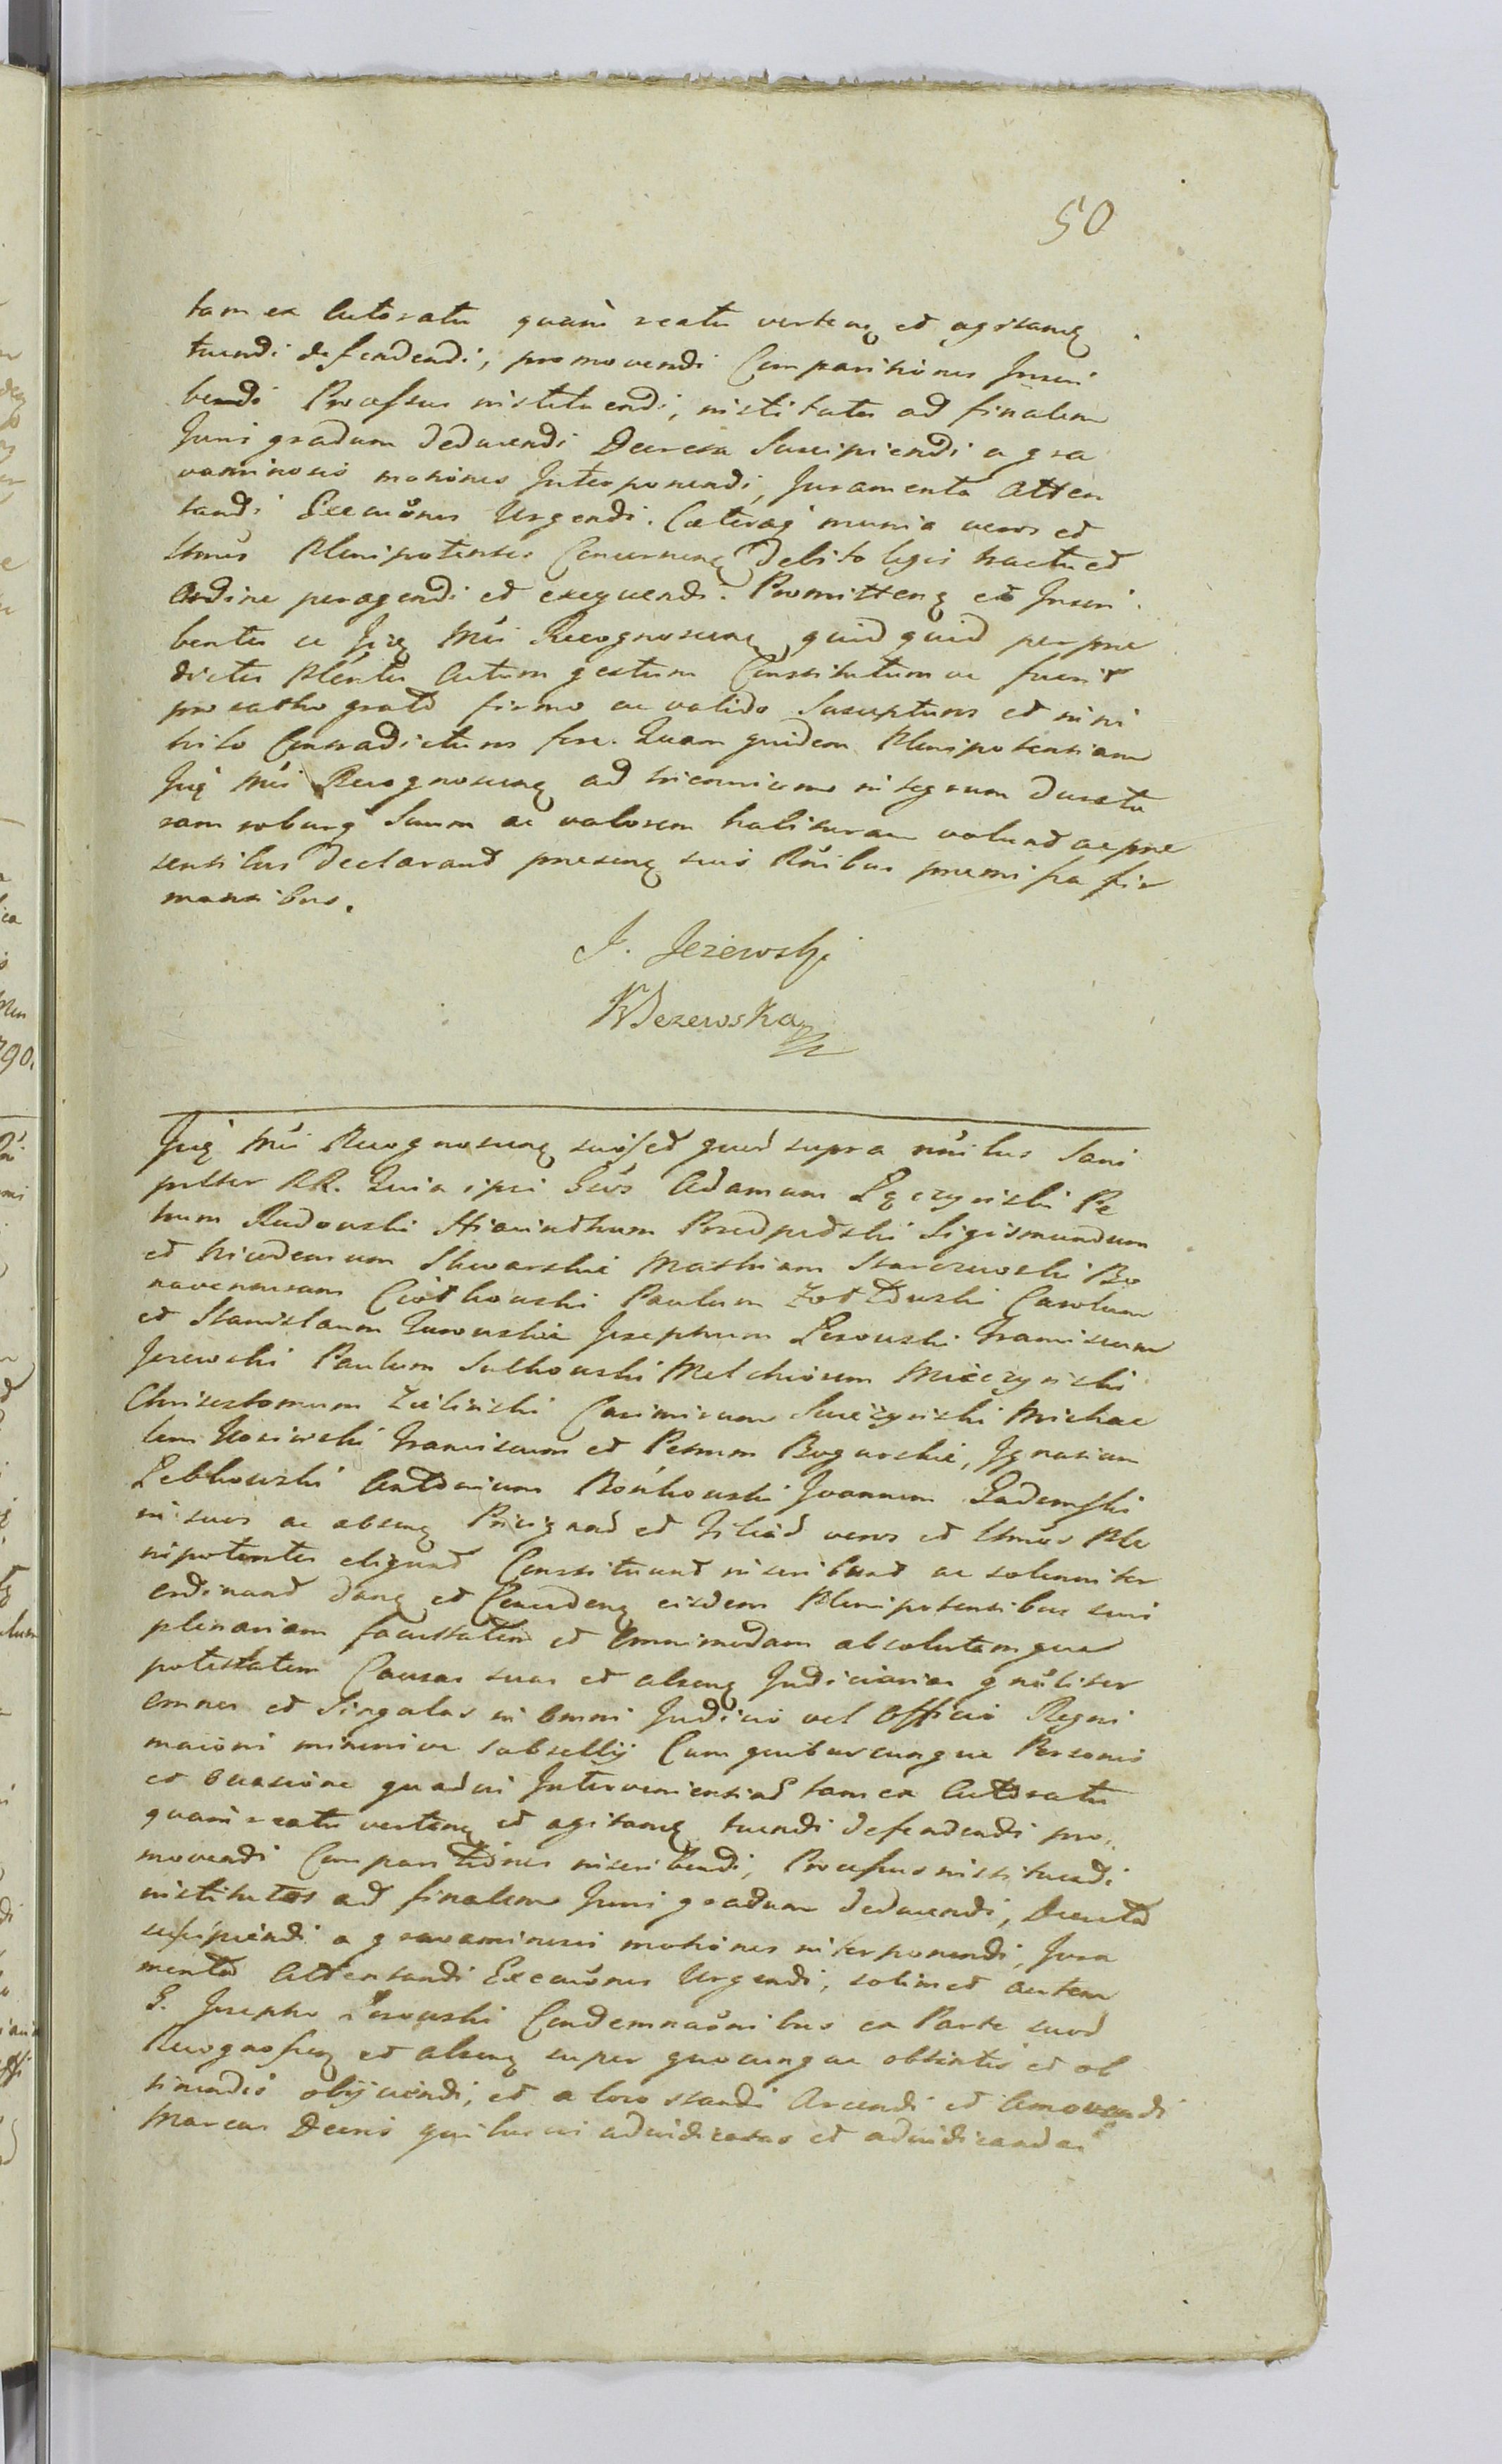 50
tam ex Actoratu quam reatu verteñ et agitañ
tuendi defendendi, promovendi Comparitiones Inscri
bendi Processus instituendi, institutos ad finalem
Juris gradum deducendi Decreta Suscipiendi a gra
vaminosis motiones Interponendi, Juramenta Atten
tandi Execuõnes Urgendi. Cæteraq munia veros et
Ltmos Plenipotentes Concerneñ debito legis tractu et
Ordine peragendi et exequendi. Promitteñ et Inscri
bentes se Jidẽ Mci Recognosceñ quid quid per præ
dictos Plentes Actum gestum Constitutum ve fuerit
pro ratho grato firmo ac valido Suscepturos et in ni
hilo Contradicturos fore. Quam quidem Plenipotentiam
Jidẽ Mci Recognosceñ ad triennium integrum duratu
ram roburq suum ac valorem habituram volunt ac præ
sentibus declarant præseñ suis Mnibus præmissa fir
mantibus.
J. Jeżewski
K Jezewska
Jidẽ Mci Recognosceñ suis et quod supra nnibus Sani
pntter RR. Quia ipsi Gsos Adamum Łęczyński Pe
trum Rudowski Hiacinthum Przedpełski Sigismundum
et Nicodemum Skwarskie Mathiam Starczewski Bo
naventuram Ciółkowski Paulum Zołtowski Carolum
et Stanislaum Zurowskie Josephum Lesowski Franciscum
Jezewski Paulum Sułkowski Melchiorem Mieczyński
Chrisostomum Zieliński Casimirum Święzyński Michae
lem Kosiński Franciscum et Petrum Bogurskie, Ignatium
Łebkowski Antonium Bońkowski Joannem Zademski
in suos ac abseñ Principal et Filial veros et Ltmos Ple
nipotentes eligunt Constituunt inscribunt ac solenniter
ordinant dañ et Concedeñ eisdem Plenipotentibus suis
plenariam facultatem et Omnimodam absolutamque
potestatem Causas suas et abseñ Judiciarias gnãliter
omnes et Singulas in Omni Judicio vel Officio Regni
maioris minorisve subsellij Cum quibuscunque Personis
et Occasione quadvis Intervenientiad tam ex Actoratu
quam reatu verteñ et agitañ tuendi defendendi pro
movendi Comparitiones inscribendi, Processus instituendi
institutos ad finalem Juris gradum deducendi, Decreta
suscipiendi a gravaminosis motiones interponendi, Jura
menta Attentandi Execuõnes Urgendi, solimet autem
G. Josepho Lesowski Condemnaõnibus ex Parte suor
Recognoscen et abseñ super quocunque obtentis et ob
tinendis objiciendi, et a loco standi Arcendi et Amovendi
Marcas Decris quibusvis adiudicatas et adiudicandas